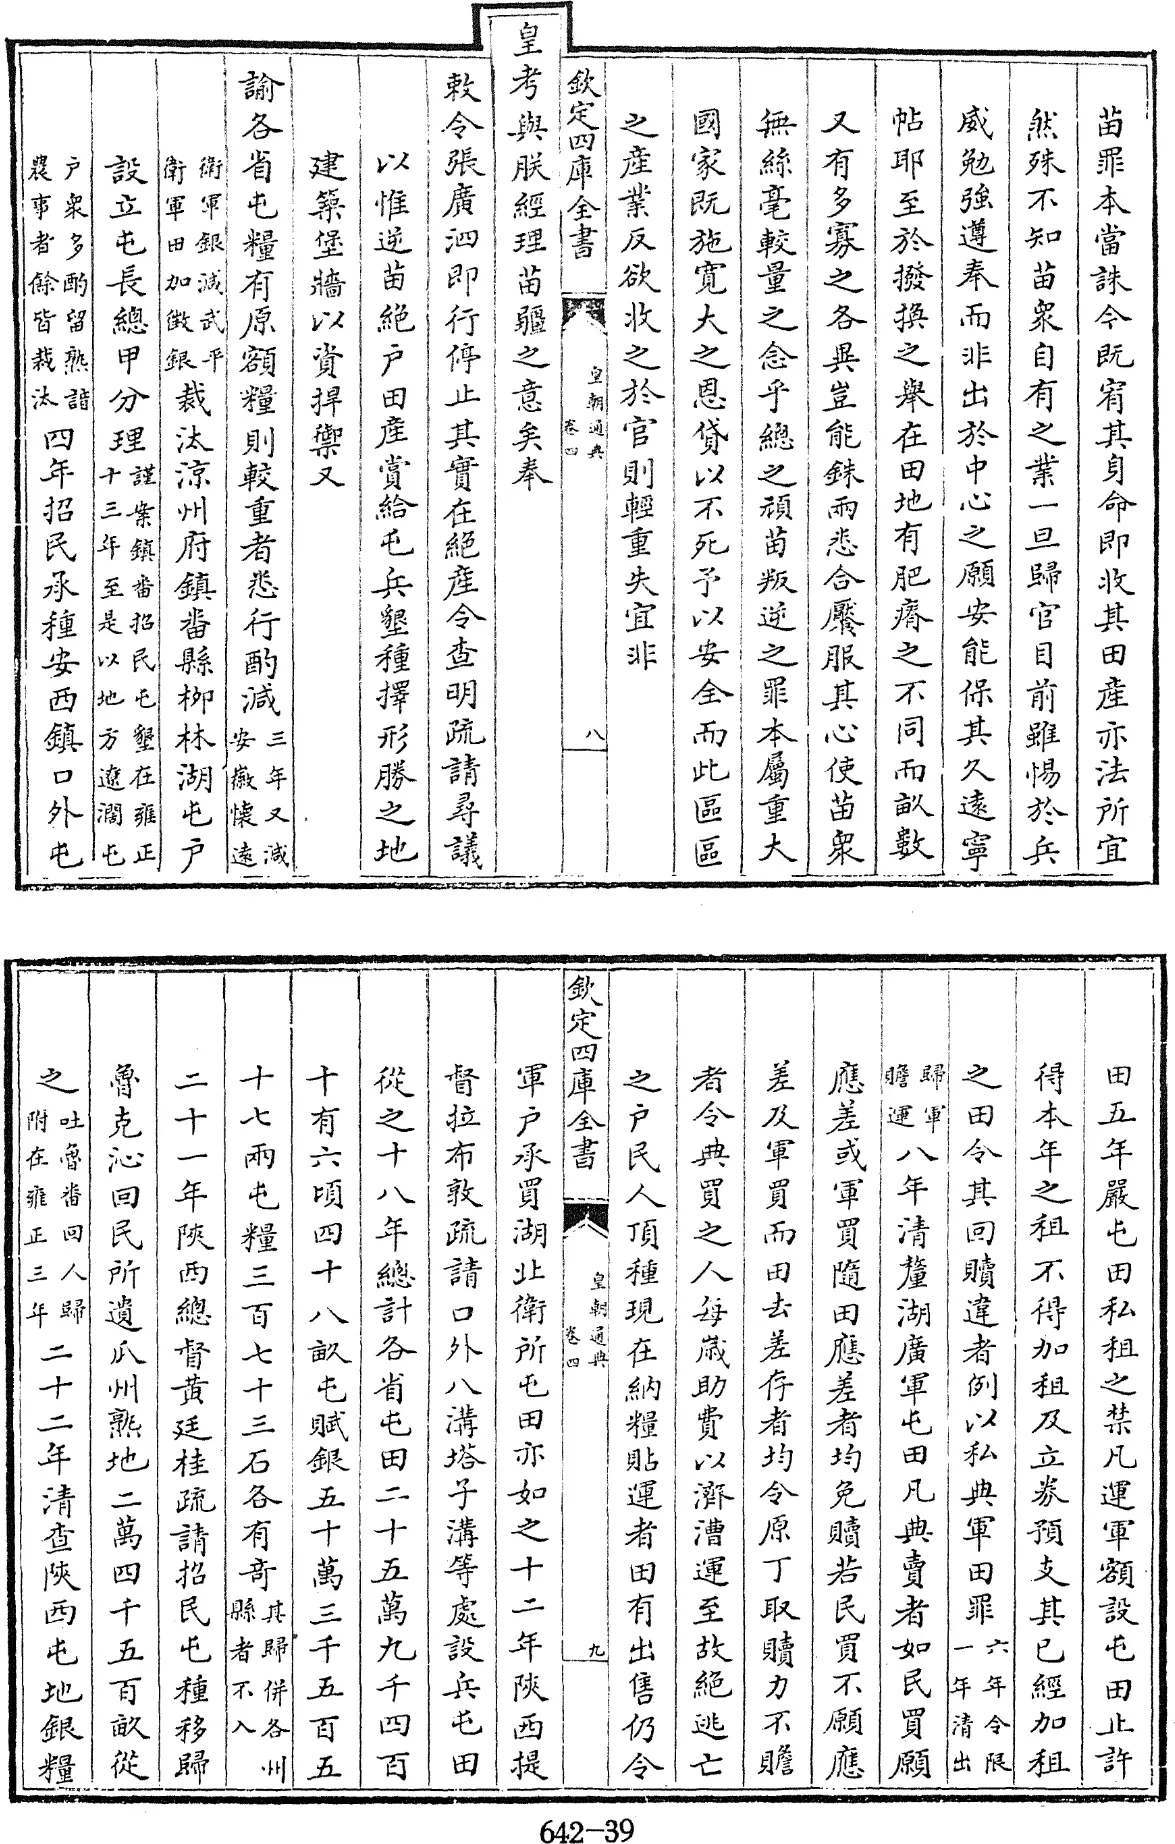 苗罪本當誅今既宥其身命即收其田產亦法所宜
然殊不知苗衆自有之業一旦歸官目前雖惕於兵
威勉強遵奉而非出於中心之願安能保其久遠寧
帖耶至於撥換之舉在田地有肥瘠之不同而畝數
又有多寡之各異豈能銖兩悉合饜服其心使苗衆
無絲毫較量之念乎總之頑苗叛逆之罪本屬重大
國家既施寛大之恩貸以不死予以安全而此區區
之產業反欲收之於官則輕重失宜非
欽定四庫全書
皇朝通典
卷四
八
皇考與朕經理苗疆之意矣奉
敕令張廣泗即行停止其實在絕產令查明疏請尋議
以惟逆苗絕户田産賞給屯兵墾種擇形勝之地
建築堡牆以資捍禦又
諭各省屯糧有原額糧則較重者悉行酌減三年又減
安徽懷遠
衛軍銀減武平
衛軍田加徵銀裁汰涼州府鎮番縣柳林湖屯户
設立屯長總甲分理謹案鎮番招民屯墾在雍正
十三年至是以地方遼濶屯
户衆多酌留熟諳
農事者餘皆裁汰四年招民承種安西鎮口外屯
田五年嚴屯田私租之禁凡運軍額設屯田止許
得本年之租不得加租及立券預支其已經加租
之田令其回贖違者例以私典軍田罪六年令限
一年清出
歸軍
贍運八年清釐湖廣軍屯田凡典賣者如民買願
應差或軍買隨田應差者均免贖若民買不願應
差及軍買而田去差存者均令原丁取贖力不贍
者令典買之人每嵗助費以濟漕運至故絕逃亡
之户民人頂種現在納糧貼運者田有出售仍令
欽定四庫全書
皇朝通典
卷四
九
軍户承買湖北衛所屯田亦如之十二年陜西提
督拉布敦疏請口外八溝塔子溝等處設兵屯田
從之十八年總計各省屯田二十五萬九千四百
十有六頃四十八畝屯賦銀五十萬三千五百五
十七兩屯糧三百七十三石各有奇其歸併各州
縣者不入
二十一年陜西總督黄廷桂疏請招民屯種移歸
魯克沁回民所遺瓜州熟地二萬四千五百畝從
之吐魯番回人歸
附在雍正三年二十二年清查陜西屯地銀糧
642-39